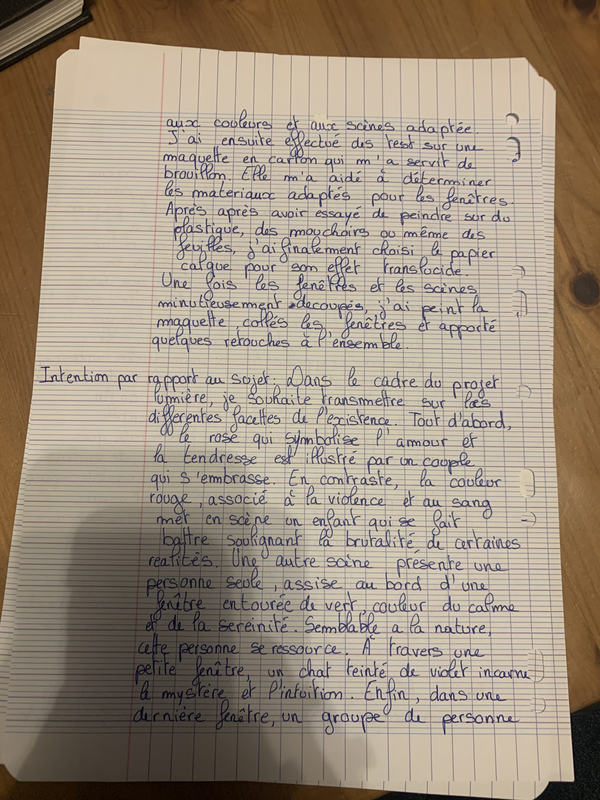 aux couleurs et aux scènes adaptée.
J'ai ensuite effectué des test sur une
maquette en carton qui m'a servit de
brouillon. Elle m'a aidé à déterminer
les materiaux adaptés pour les fenêtres.
Après après avoir essayé de peindre sur du
plastique, des mouchoirs ou même des
feuilles, j'ai finalement choisi le papier
calque pour son effet translucide.
Une fois les fenêtres et les scènes
minutieusement decoupés, j'ai peint la
maquette, collés les fenêtres et apporté
quelques retouches à l'ensemble.
Intention par rapport au sujet: Dans le cadre du projet
lumière, je souhaite transmettre sur les
différentes facettes de l'existence. Tout d'abord,
le rose qui symbolise l'amour et
la tendresse est illustré par un couple
qui s'embrasse. En contraste, la couleur
rouge, associé à la violence et au sang
met en scène un enfant qui se fait
battre soulignant la brutalité de certaines
réalités. Une autre scène présente une
personne seule, assise au bord d'une
fenêtre entourée de vert, couleur du calme
et de la sereinité. Semblable a la nature,
cette personne se ressource. À travers une
petite fenêtre, un chat teinté de violet incarne
le mystère et l'intuition. Enfin, dans une
dernière fenêtre, un groupe de personne